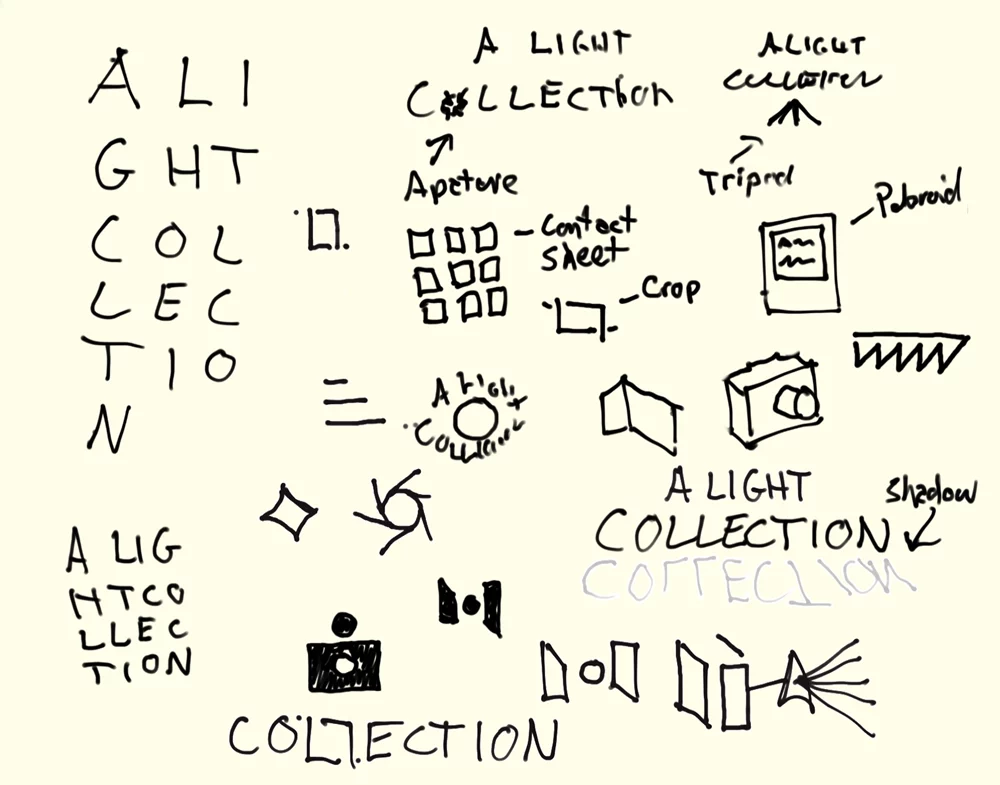 A LI
GHT
COL
LEC
TIO
N
A LIGHT
COLLECTION
Aperture
A LIGHT
Tripod
Contact
sheet
Crop
Polaroid
A Light
A LIGHT
COLLECTION
Shadow
COLLECTION
A LIG
HTCO
LLEC
TION
COLLECTION